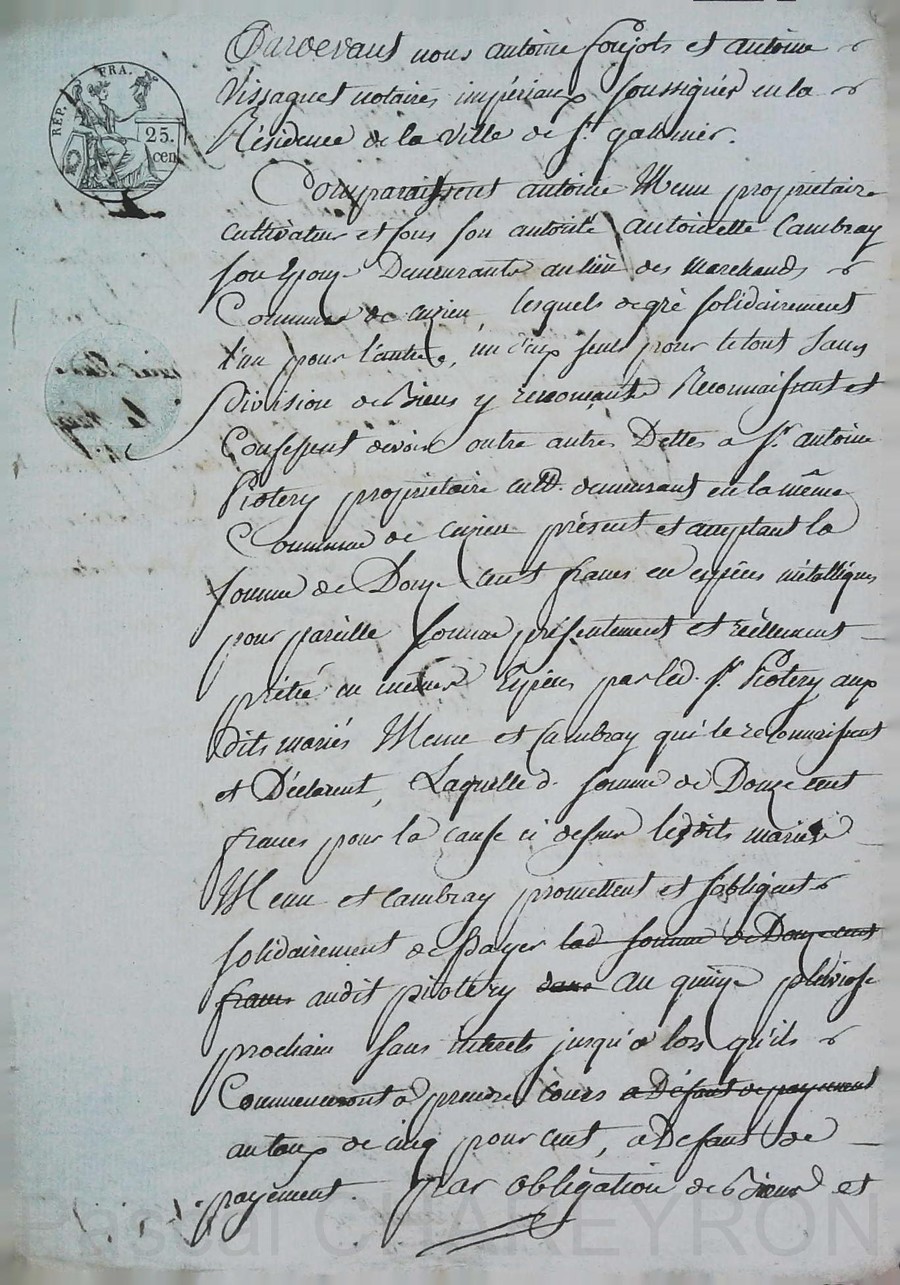 RÉP. FRA.
25.
cen
Pardevant nous antoine foujols et antoine
Vissaguet notaires impériaux soussignés en la
Résidence de la ville de St. galmier.
Comparaissent antoine Menu proprietaire
Cultivateur et sous son autorité antoinette Cambray
son Epouze Demeurants au lieu des Marchands
Commune de Cuzieu, lesquels de gré solidairement
l'un pour l'autre, un d'eux seul pour le tout sans
Division de Biens y renonçants Reconnaissent et
Confessent devoir outre autres Dettes a Sr. antoine
Piotery proprietaire cultr. demeurant en la même
Commune de Cuzieu présent et acceptant la
somme de Douze cent francs en espèces métalliques
pour pareille somme présentement et réellement
prêtée en mêmes Espèces par led. Sr. Piotery aux
dits mariés Menu et Cambray qui le reconnaissent
et Déclarent, Laquelle d. somme de Douze cent
francs pour la cause ci dessus lesdits mariés
Menu et Cambray promettent et s'obligent
solidairement de Payer lad somme de Douze cent
francs audit piotery dans au quinze pluviose
prochain sans interets jusqu'a lors qu'ils
Commenceront a prendre cours a Défaut de payement
au taux de cinq pour cent, a Defaut de
payement. Par obligation de Biens et
Pascal CHAREYRON